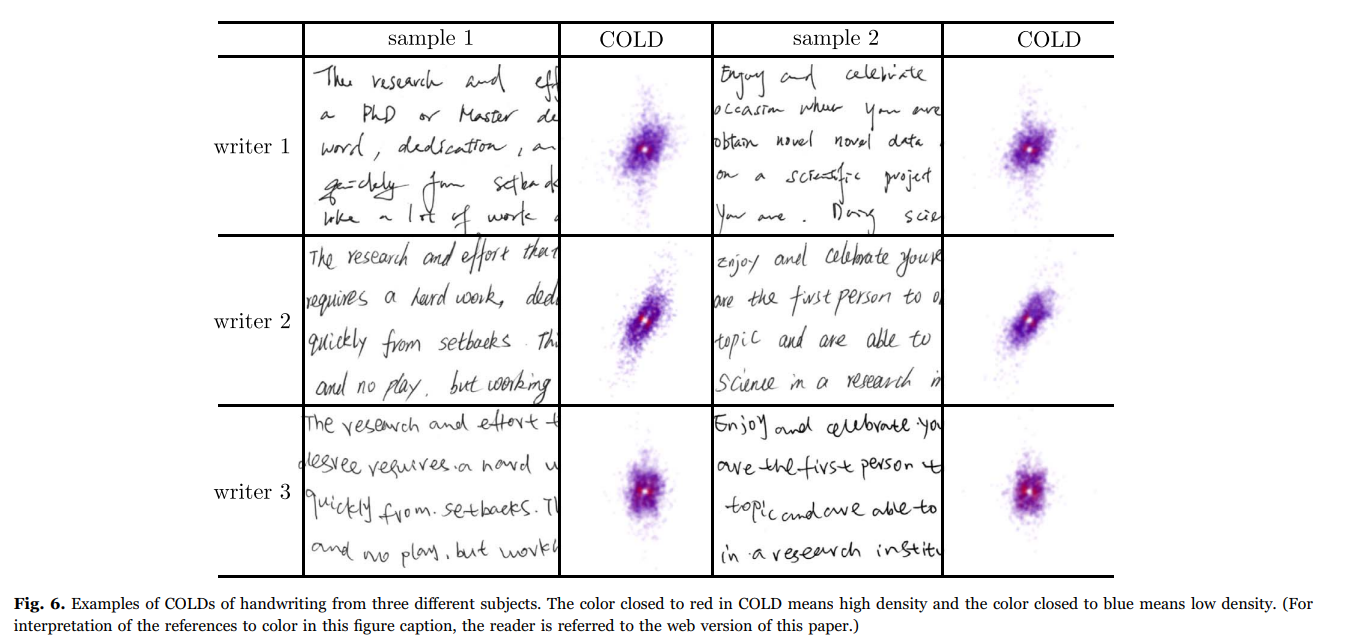 sample 1 COLD sample 2 COLD
writer 1
The research and eff
a PhD or Master de
word, dedication, an
quickly from setbacks
take a lot of work a
Enjoy and celebrate
occasion when you are
obtain novel novel data
on a scientific project
You are. Doing scie
writer 2
The research and effort that
requires a hard work, ded
quickly from setbacks. Thi
and no play, but working
Enjoy and celebrate your
are the first person to o
topic and are able to
Science in a research in
writer 3
The research and effort t
degree requires a hard w
quickly from setbacks. Th
and no play, but worki
Enjoy and celebrate you
are the first person t
topic and are able to
in a research institu
Fig. 6. Examples of COLDs of handwriting from three different subjects. The color closed to red in COLD means high density and the color closed to blue means low density. (For
interpretation of the references to color in this figure caption, the reader is referred to the web version of this paper.)